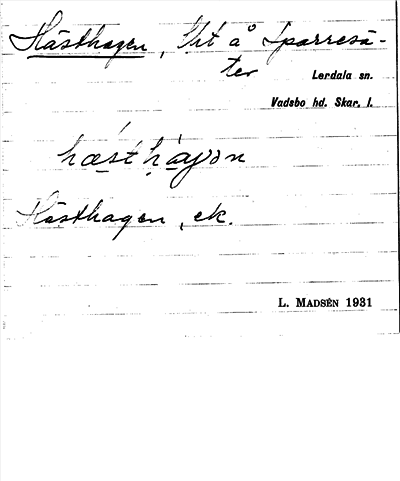 Hästhagen, lht å Sparresä-
ter
Lerdala sn.
Vadsbo hd. Skar. l.
hæst hagən
Hästhagen, ek.
L. MADSÉN 1931